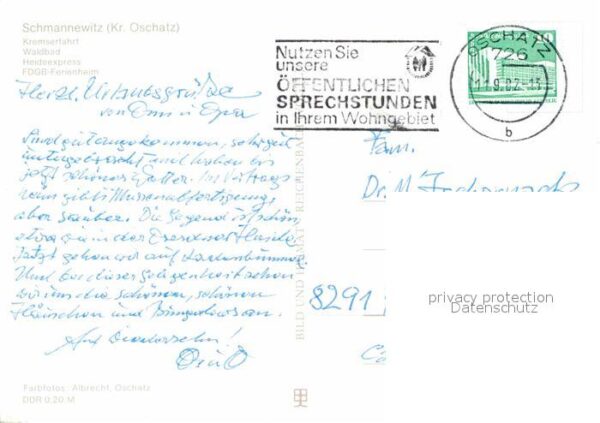 Schmannewitz (Kr. Oschatz)
Kremserfahrt
Waldbad
Heideexpress
FDGB-Ferienheim
Nutzen Sie
unsere
ÖFFENTLICHEN
SPRECHSTUNDEN
in Ihrem Wohngebiet
OSCHATZ
726
b
10
Herzl. Urlaubsgrüße
von Oma u. Opa
Sind gut angekommen, sehr gut
untergebracht und haben bis
jetzt schönes Wetter. Im Vertrags
aber sauber. Die Gegend ist schön,
etwa wie in der Dresdner Heide.
Jetzt gehen wir auf Ladenbummel.
Und bei dieser Gelegenheit sehen
wir uns die schönen, schönen
Häuschen und Bungalows an.
Auf Wiedersehn!
Fam.
Dr. M.
8291
BILD UND HEIMAT REICHENBACH
privacy protection
Datenschutz
Farbfotos: Albrecht, Oschatz
DDR 0,20 M